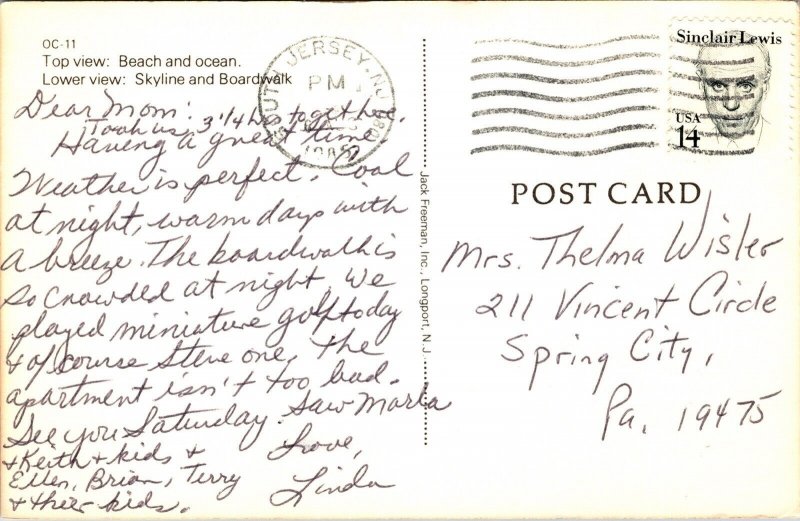 OC-11
Top view: Beach and ocean.
Lower view: Skyline and Boardwalk
SOUTH JERSEY, NJ 080
PM
1985
Dear Mom:
Took us 3 1/4 hrs to get here.
Haveng a great time.
Weather is perfect. Cool
at night, warm days with
a breeze. The boardwalk is
so crowded at night. We
played miniature golf today
& of course Steve one. The
apartment isn't too bad.
See you Saturday. Saw Marla
& Keith & kids &
Ellen, Brian, Terry
& their kids.
Love,
Linda
Jack Freeman, Inc., Longport, N.J.
Sinclair Lewis
USA
14
POST CARD
Mrs. Thelma Wisler
211 Vincent Circle
Spring City,
Pa. 19475